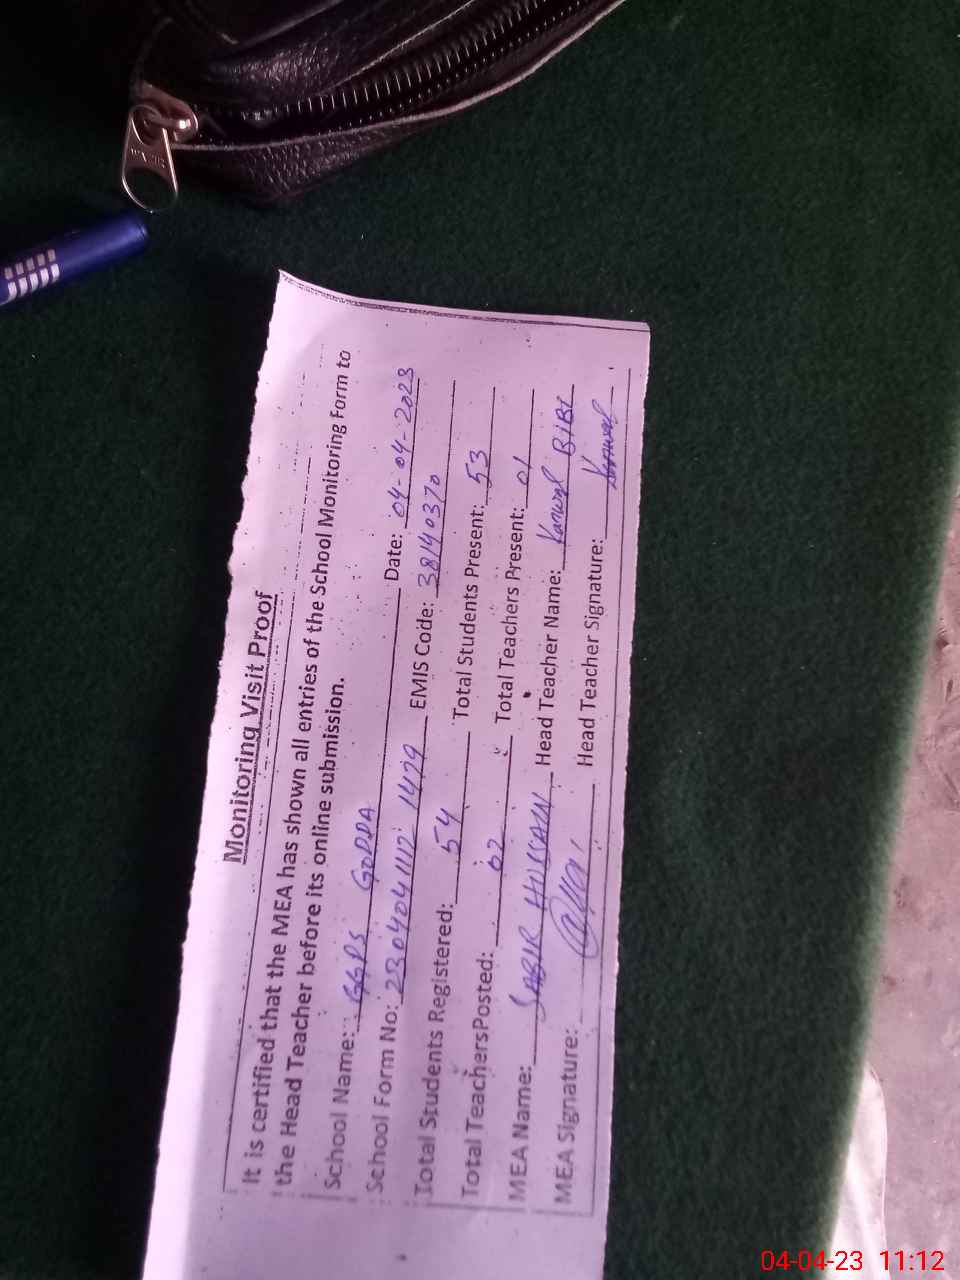 Monitoring Visit Proof
It is certified that the MEA has shown all entries of the School Monitoring Form to
the Head Teacher before its online submission.
School Name: GGPS GODDA Date: 04-04-2023
School Form No: 230404 1112 1479 EMIS Code: 38140370
Total Students Registered: 54 Total Students Present: 53
Total TeachersPosted: 02 Total Teachers Present: 01
MEA Name: SABIR HUSSAIN Head Teacher Name: Kanwal BIBI
MEA Signature: Head Teacher Signature: Kanwal
04-04-23 11:12